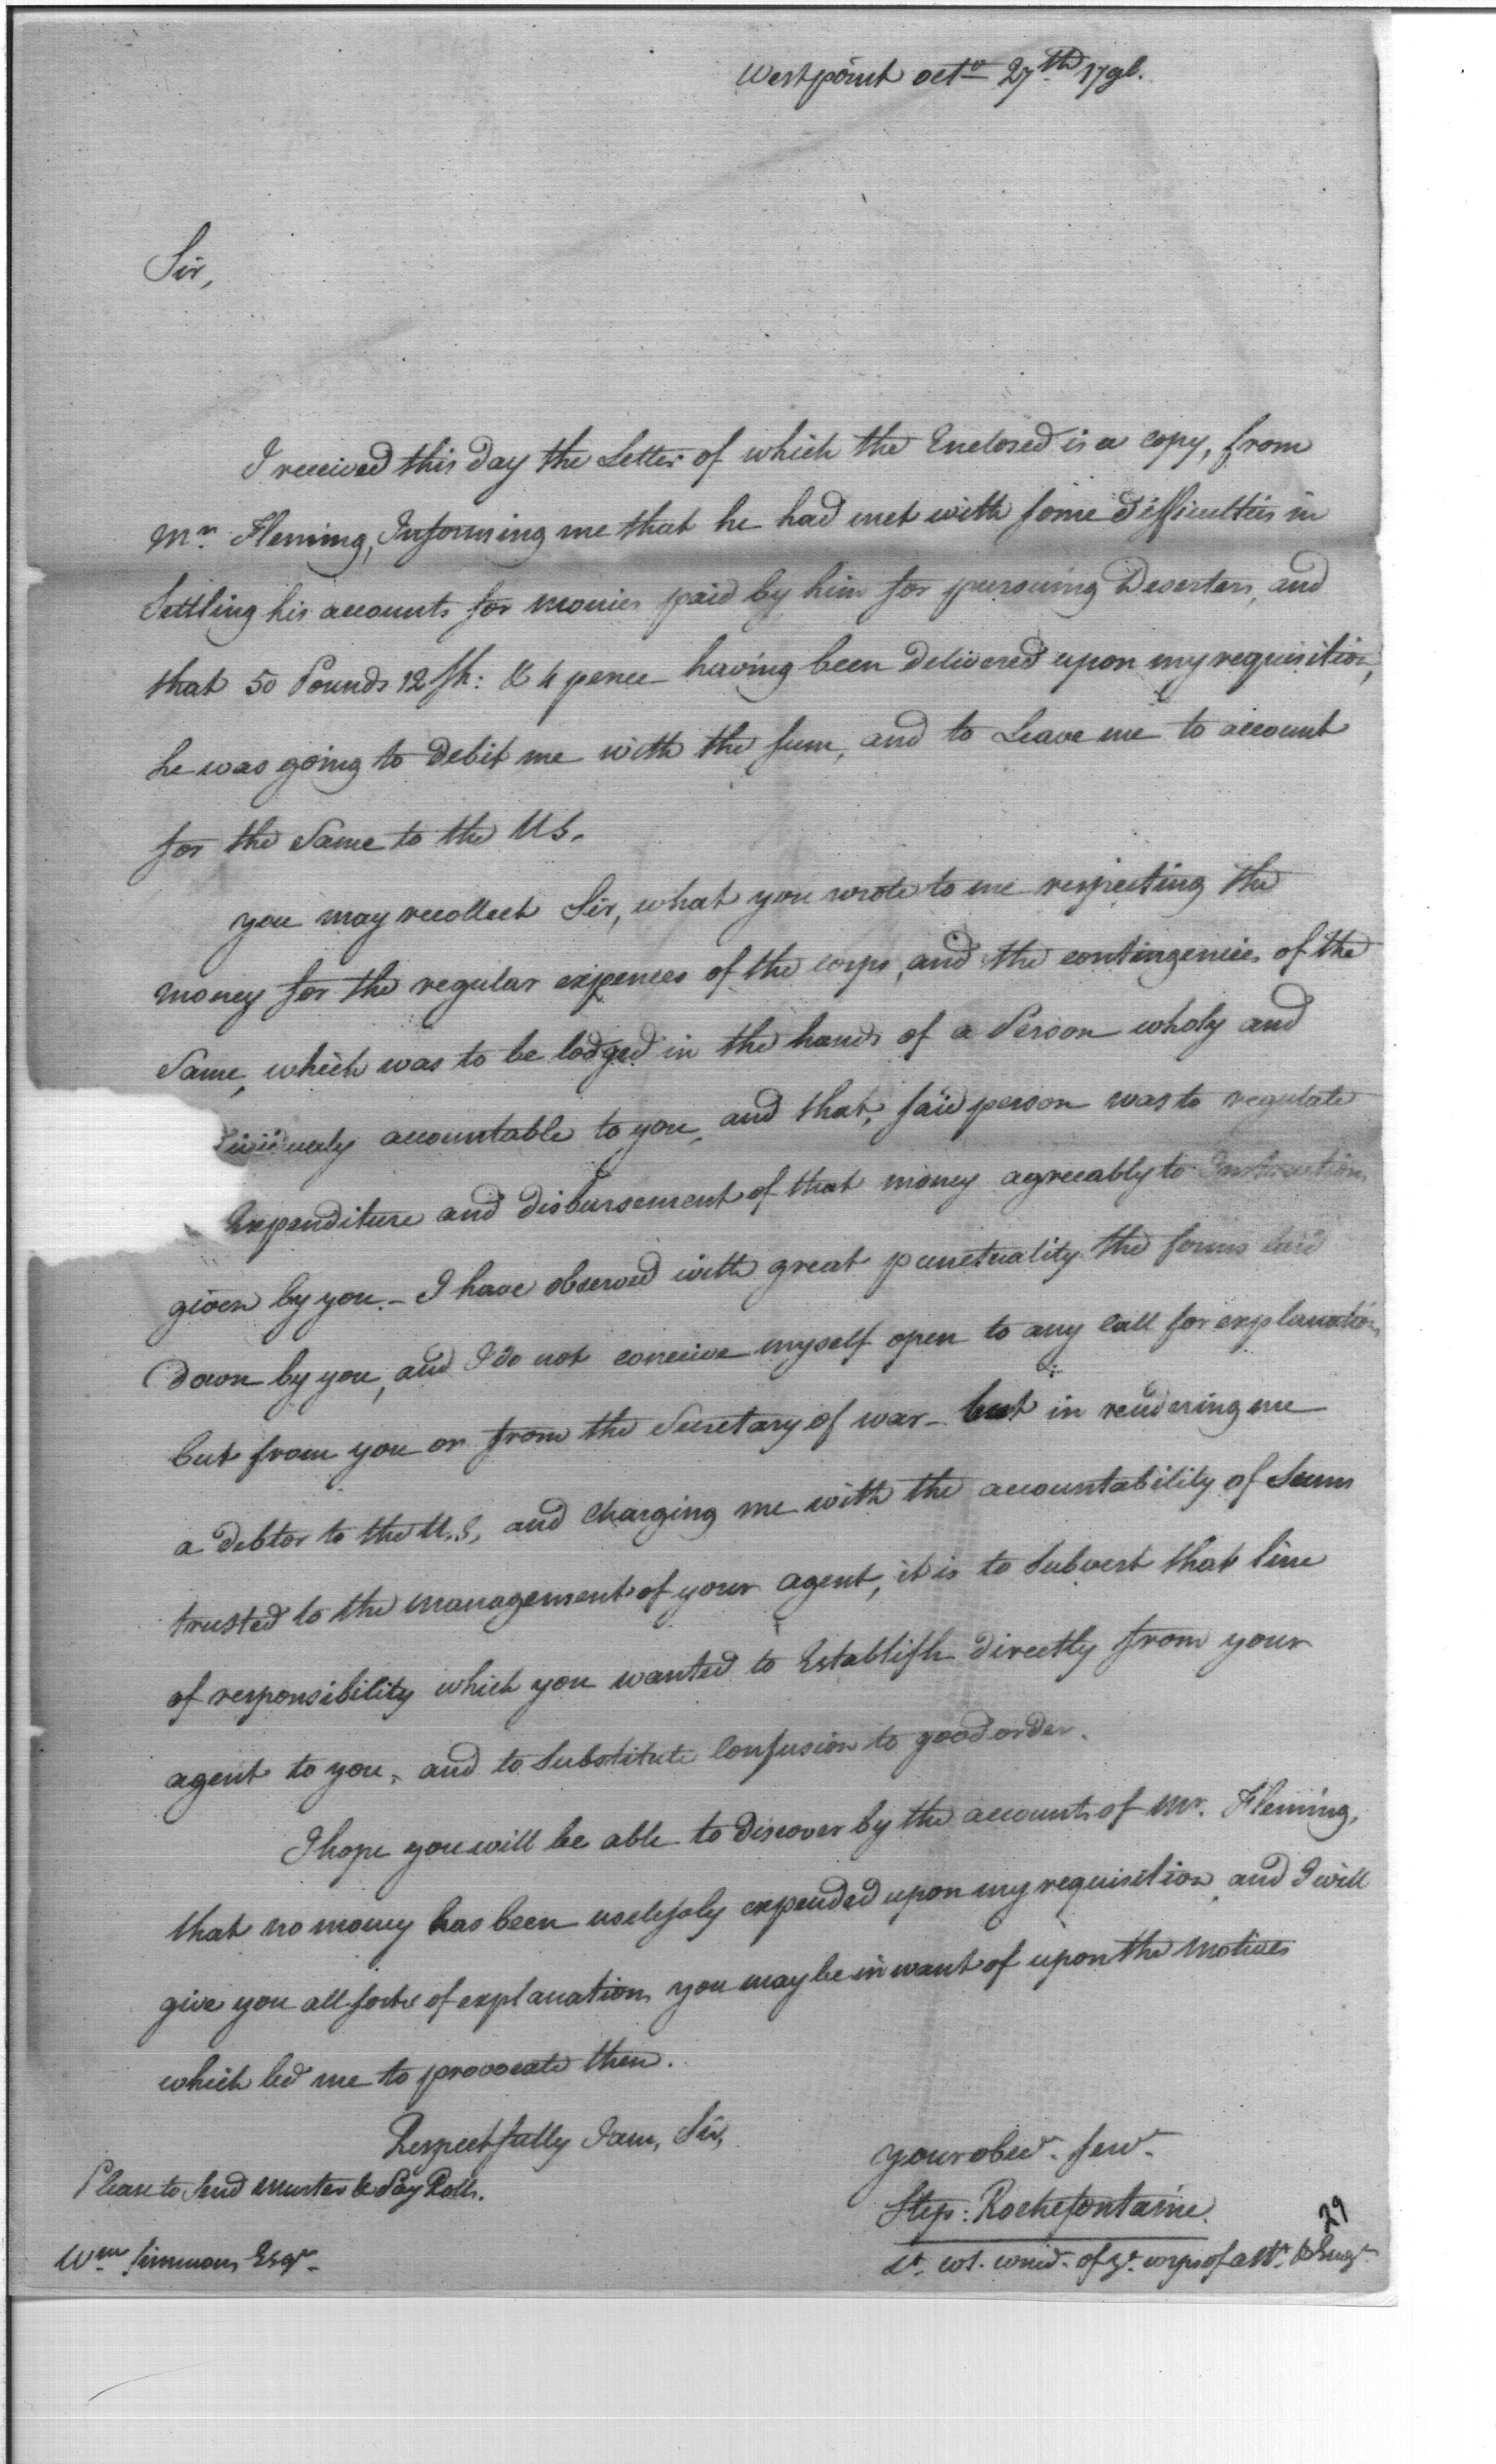 Westpoint octo 27th 1796.
Sir,
I received this day the Letter of which the Enclosed is a copy, from
Mr. Fleming, Informing me that he had met with some difficulties in
Settling his accounts for monies paid by him for pursuing Deserters, and
that 50 Pounds 12 sh: & 4 pence having been delivered upon my requisition,
he was going to debit me with the sum, and to Leave me to account
for the Same to the US.
you may recollect Sir, what you wrote to me respecting the
money for the regular expences of the corps, and the contingencies of the
Same, which was to be lodged in the hands of a Person wholy and
accountable to you, and that, said person was to regulate
Expenditure and disbursement of that money agreeably to Instructions
given by you. - I have observed with great punctuality the forms laid
down by you, and I do not conceive myself open to any call for explanation
but from you or from the Secretary of war - but in rendering me
a debtor to the U.S, and charging me with the accountability of Sums
trusted to the management of your agent, it is to Subvert that line
of responsibility which you wanted to Establish directly from your
agent to you, and to Substitute Confusion to good order.
I hope you will be able to discover by the accounts of Mr. Fleming,
that no money has been uselessly expended upon my requisition, and I will
give you all sorts of explanation you may be in want of upon the motives
which led me to provocate them.
Respectfully I am, Sir,
your obed. serv.
Please to Send Muster & Pay Rolls.
Step: Rochefontaine.
29
Wm Simmons Esqr
Lt. col. comd. of ye. corps of artr. & Engr.